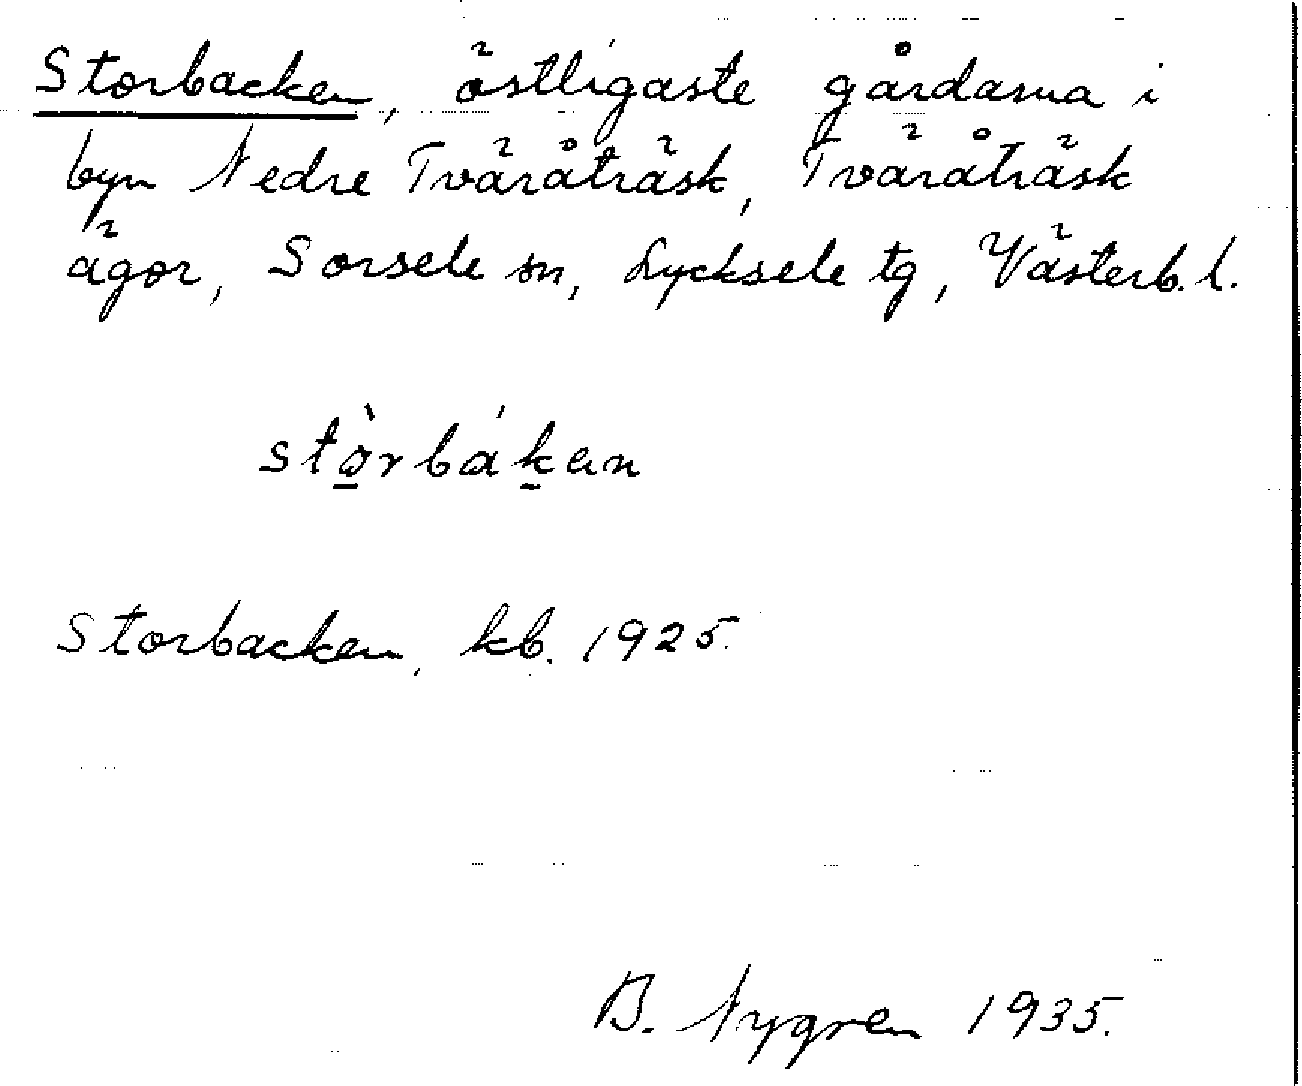 Storbacken, östligaste gårdarna i
byn Nedre Tväråträsk, Tväråträsk
ägor, Sorsele sn, Lycksele tg, Västerb. l.
stò̱rbák̠en
Storbacken, kb. 1925.
B. Nygren 1935.